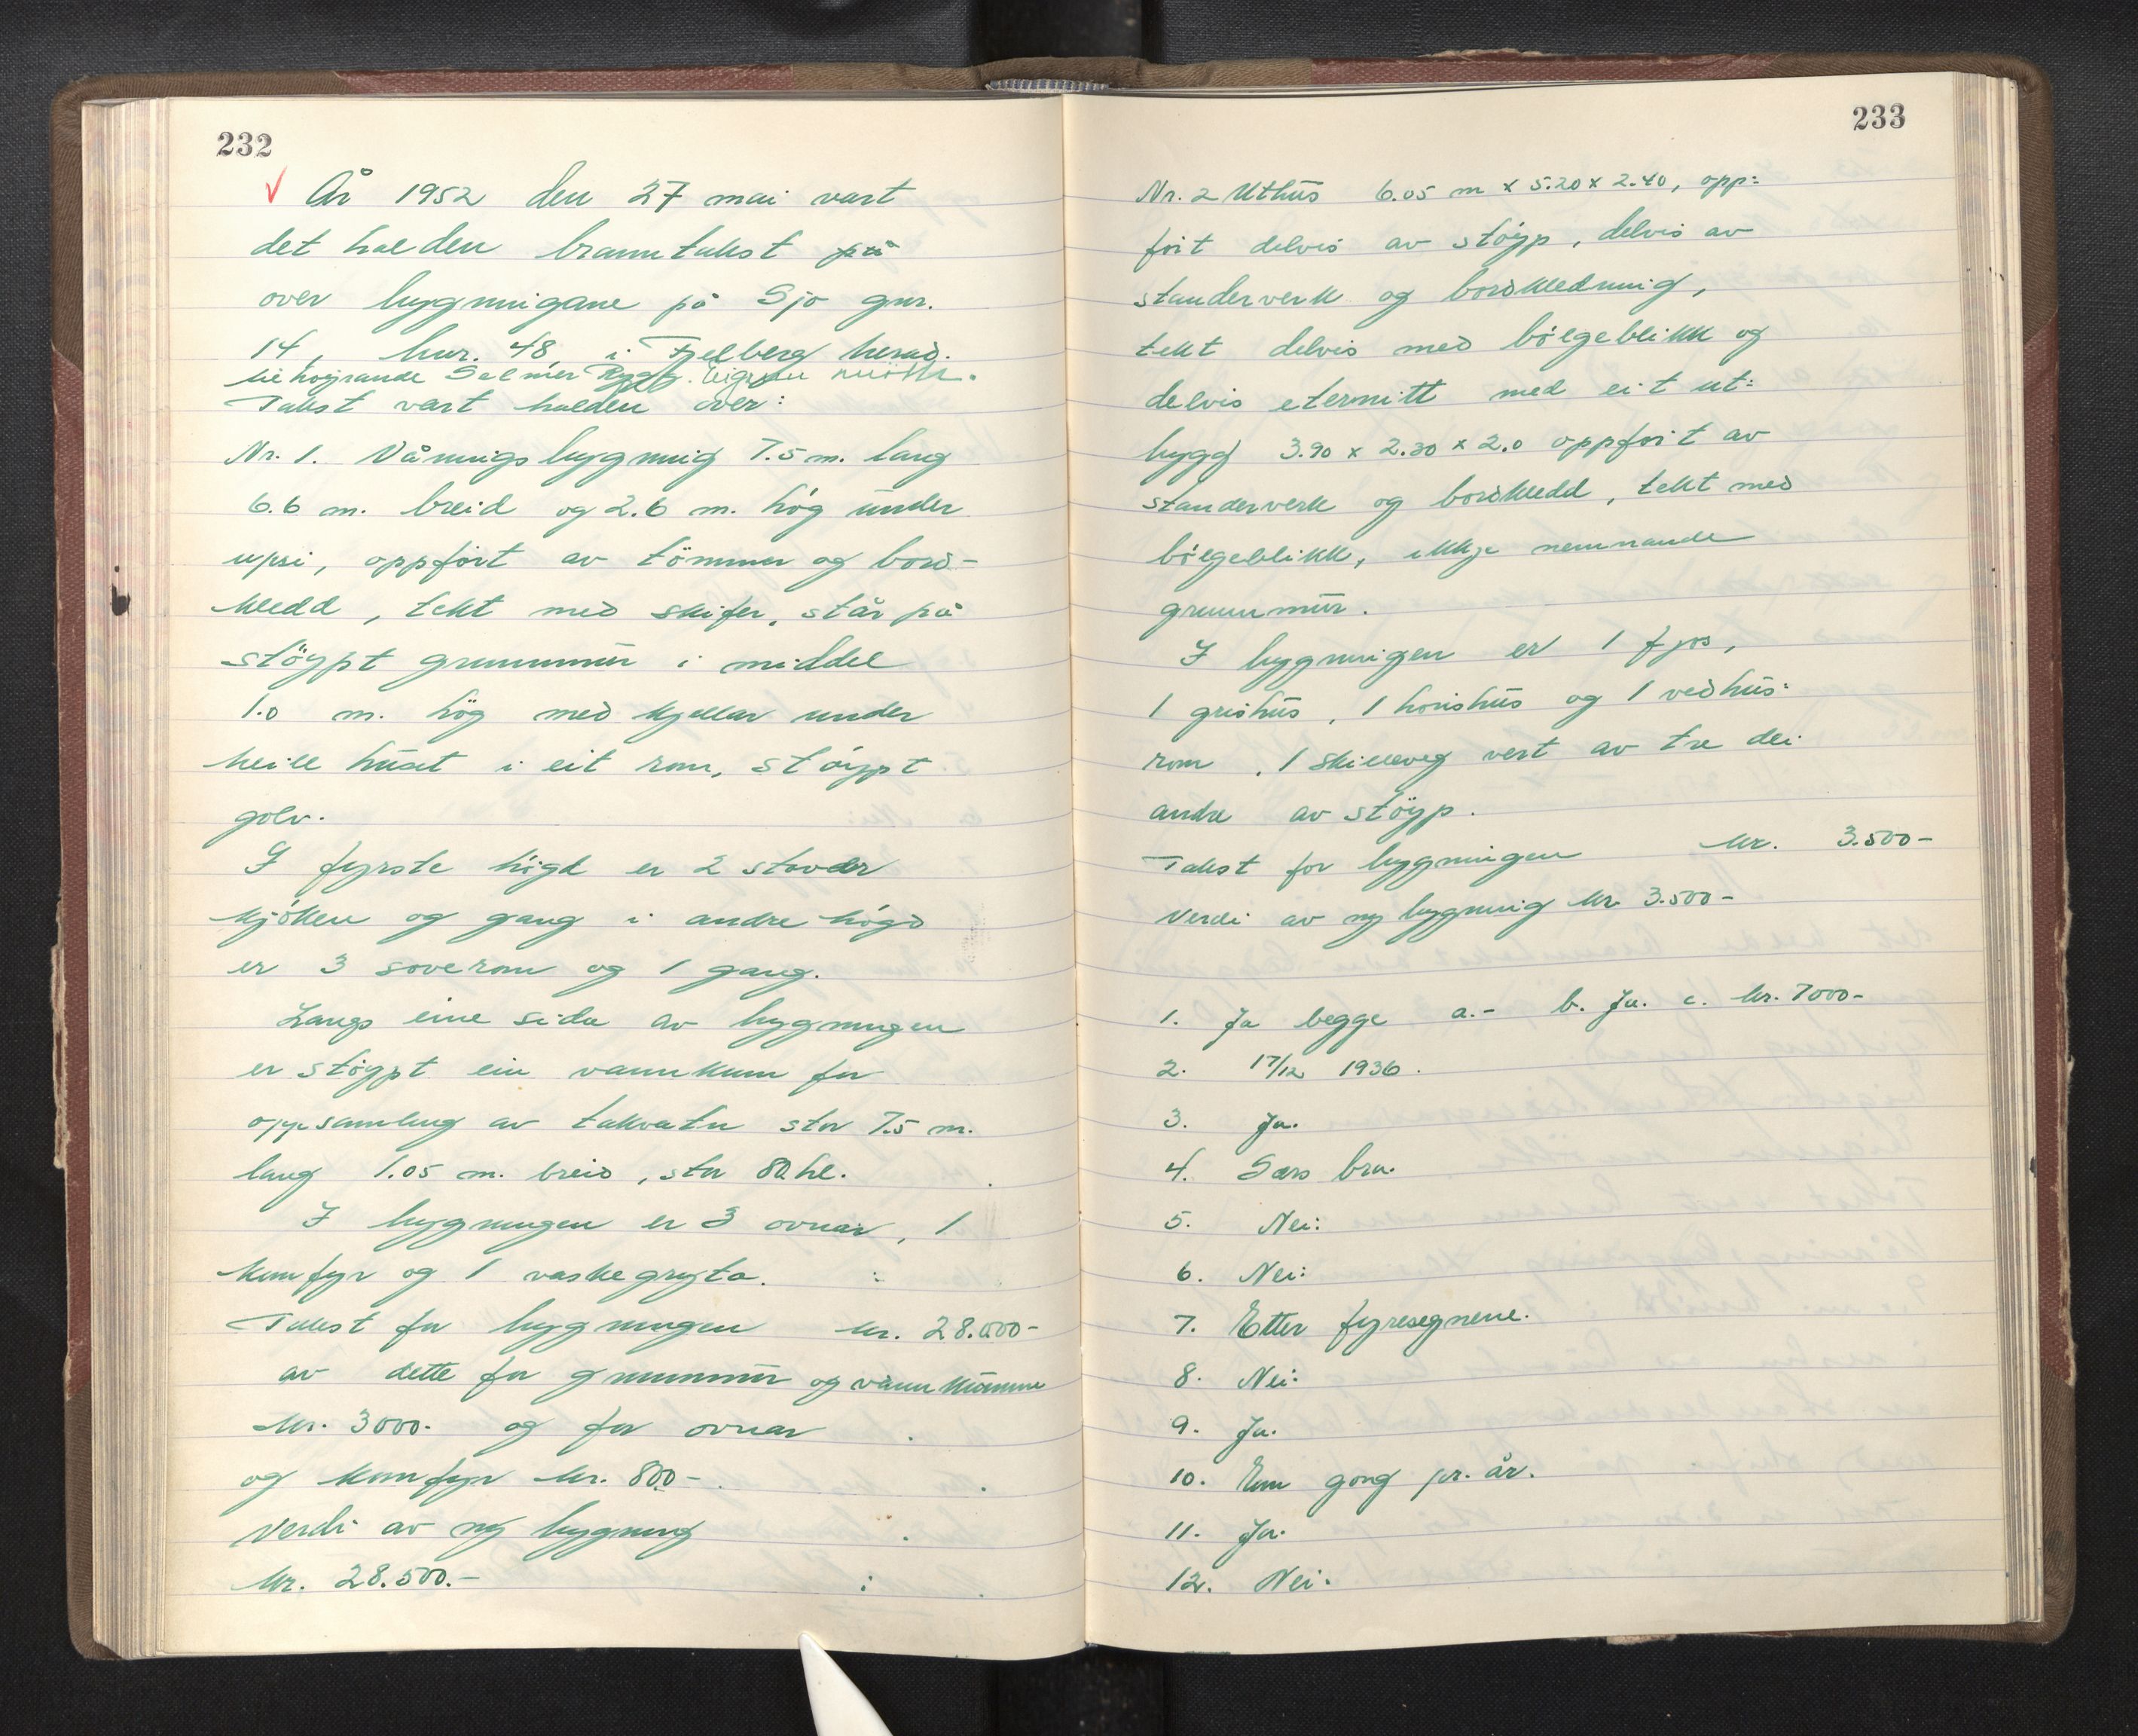 232
År 1952 den 27 mai vart
det halden branntakst på
over bygningane på Sjo gnr.
14, bnr. 48, i Fjelberg herad.
tilhøyrande Selmer Rygg. Eigaren møtte.
Takst vart halden over:
Nr. 1. Våningsbygning 7.5 m. lang
6.6 m. breid og 2.6 m. høg under
upsi, oppført av tømmer og bord-
kledd, tekt med skifer, står på
støypt grunnmur i middel
1.0 m. høg med kjellar under
heile huset i eit rom, støypt
golv.
I fyrste høgd er 2 stover
kjøken og gang i andre høgd
er 3 soverom og 1 gang.
Langs eine sida av bygningen
er støypt ein vannkum for
oppsamling av takvatn stor 7.5 m.
lang 1.05 m. breid, stor 80 hl.
I bygningen er 3 ovnar, 1
komfyr og 1 vaskegryta.
Takst for bygningen kr. 28.000-
av dette for grunnmur og vannkumme
kr. 3000.- og for ovnar
og komfyr kr. 800-
Verdi av ny bygning
kr. 28.500.-
233
Nr. 2 Uthus 6.05 m x 5.20 x 2.40, opp:
ført delvis av støyp, delvis av
standerverk og bordkledning,
tekt delvis med bølgeblikk og
delvis eternitt med eit ut:
bygg 3.90 x 2.30 x 2.0 oppført av
standerverk og bordkledd, tekt med
bølgeblikk, ikkje nemnande
grunnmur.
I bygningen er 1 fjos,
1 grishus, 1 hønshus og 1 vedhus:
rom, 1 skilleveg vert av tre dei
andre av støyp.
Takst for bygningen kr. 3.500-
Verdi av ny bygning kr. 3.500-
1. Ja begge a.- b. Ja. c. kr. 7000-
2. 17/12 1936.
3. Ja.
4. Særs bra.
5. Nei:
6. Nei:
7. Etter fyresegnene.
8. Nei:
9. Ja.
10. Ein gong pr. år.
11. Ja.
12. Nei.